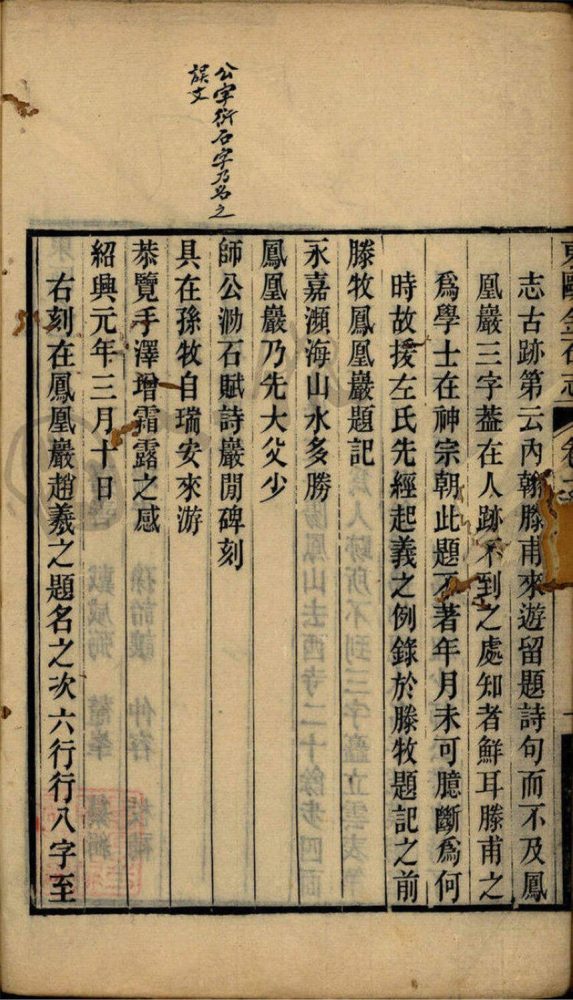 東甌金石志 卷
志古跡第云內翰滕甫來遊留題詩句而不及鳳
凰巖三字葢在人跡不到之處知者鮮耳滕甫之
爲學士在神宗朝此題不著年月未可臆斷爲何
時故援左氏先經起義之例錄於滕牧題記之前
滕牧鳳凰巖題記
永嘉瀕海山水多勝
鳳凰巖乃先大父少
師公泐石賦詩巖閒碑刻
具在孫牧自瑞安來游
恭覽手澤增霜露之感
紹興元年三月十日
右刻在鳳凰巖趙羲之題名之次六行行八字至
公字衍石字乃名之
誤文